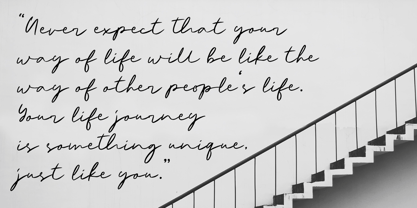 “Never expect that your
way of life will be like the
way of other people's life.
Your life journey
is something unique.
just like you.”